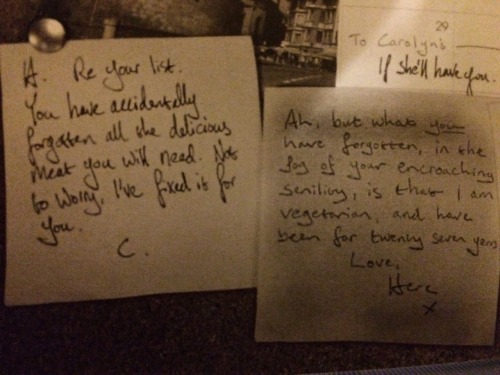 H. Re your list.
You have accidentally
forgotten all the delicious
meat you will need. Not
to worry, I've fixed it for
you.
C.
29
To Carolyn's
If she'll have you.
Ah, but what you
have forgotten, in the
fog of your encroaching
senility, is that I am
vegetarian, and have
been for twenty seven years
Love,
Herc
x